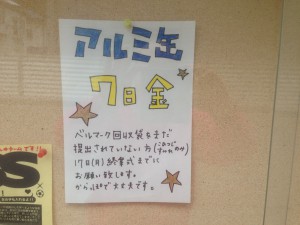 アルミ缶
7日金
ベルマーク回収袋をまだ
提出されていない方
17日(月)終業式までに
お願い致します。
からっぽで大丈夫です。
S